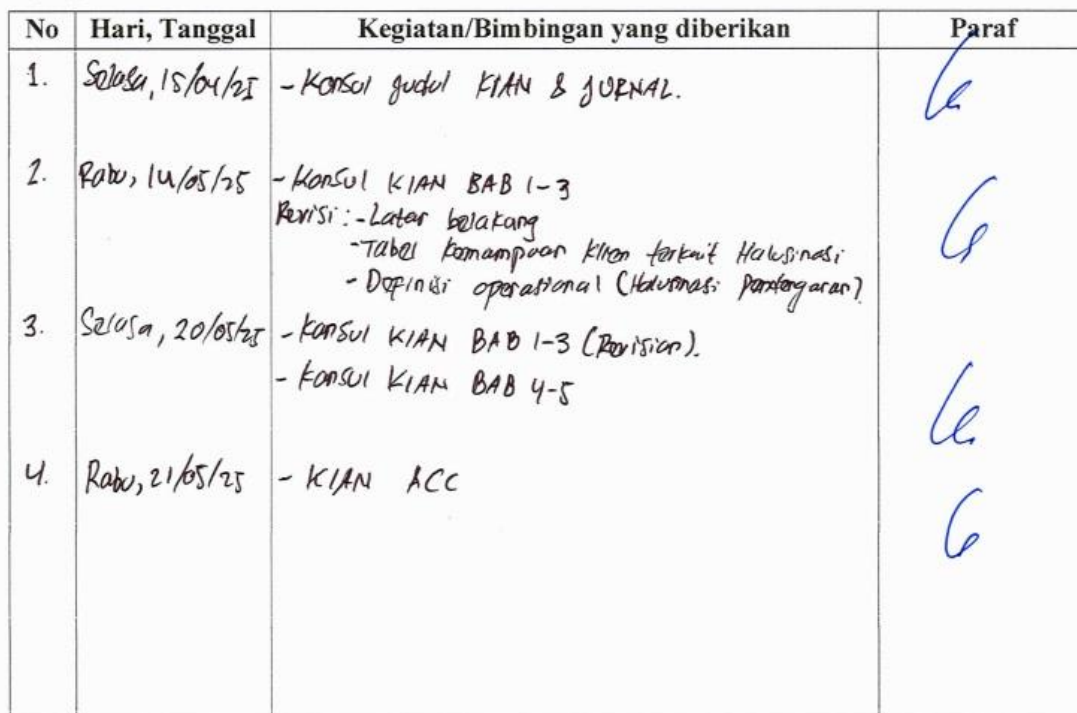 No Hari, Tanggal Kegiatan/Bimbingan yang diberikan Paraf
1. Selasa, 15/04/25 - Konsul judul KIAN & JURNAL.
2. Rabu, 14/05/25 - Konsul KIAN BAB 1-3
Revisi : - Latar belakang
- Tabel Kemampuan Klien terkait Halusinasi
- Definisi operasional (Halusinasi Pendengaran)
3. Selasa, 20/05/25 - Konsul KIAN BAB 1-3 (Revisian).
- Konsul KIAN BAB 4-5
4. Rabu, 21/05/25 - KIAN ACC